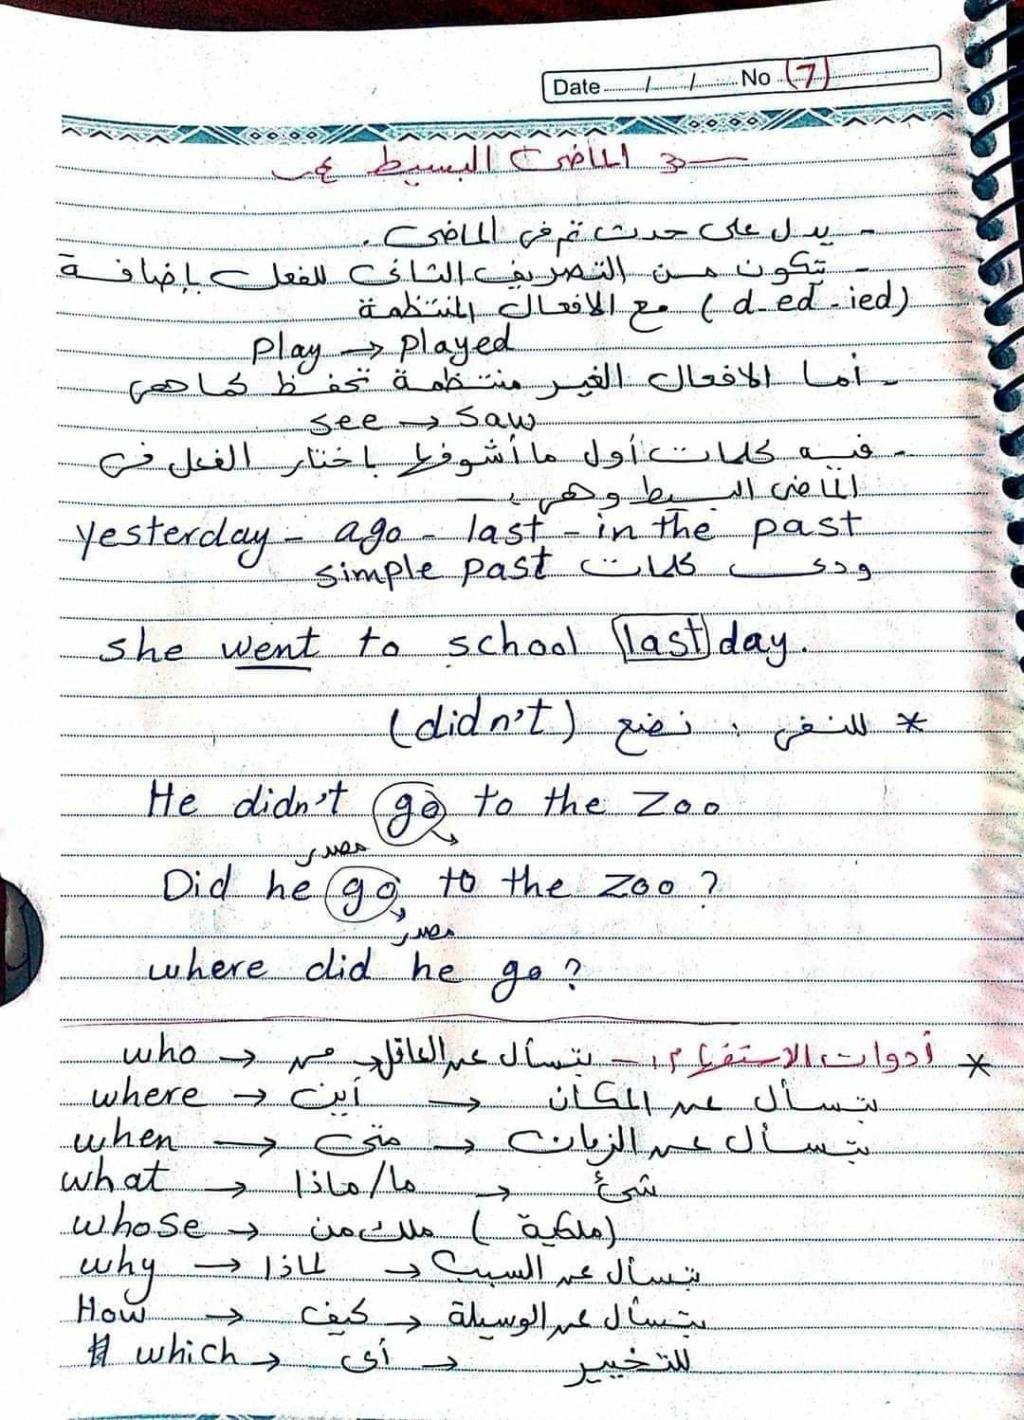 Date ...../...../..... No (7)
الماضى البسيط
- يدل على حدث تم فى الماضى .
- يتكون من التصريف الثانى للفعل بإضافة
(d - ed - ied) مع الافعال المنتظمة
play → played
- أما الافعال الغير منتظمة تحفظ كما هى
see → saw
- فيه كلمات أول ما أشوفها باختار الفعل فى
الماضى البسيط وهى :
yesterday - ago - last - in the past
ودى كلمات simple past
she went to school last day.
* للنفى : نضع (didn't)
He didn't go to the zoo
مصدر
Did he go to the zoo ?
مصدر
where did he go ?
* أدوات الاستفهام :- بتسأل عن العاقل → من → who
بتسأل عن المكان → أين → where
بتسأل عن الزمان → متى → when
شئ → ما/ماذا → what
(ملكية) ملك من → whose
بتسأل عن السبب → لماذا → why
بتسأل عن الوسيلة → كيف → How
للتخيير → أى → which